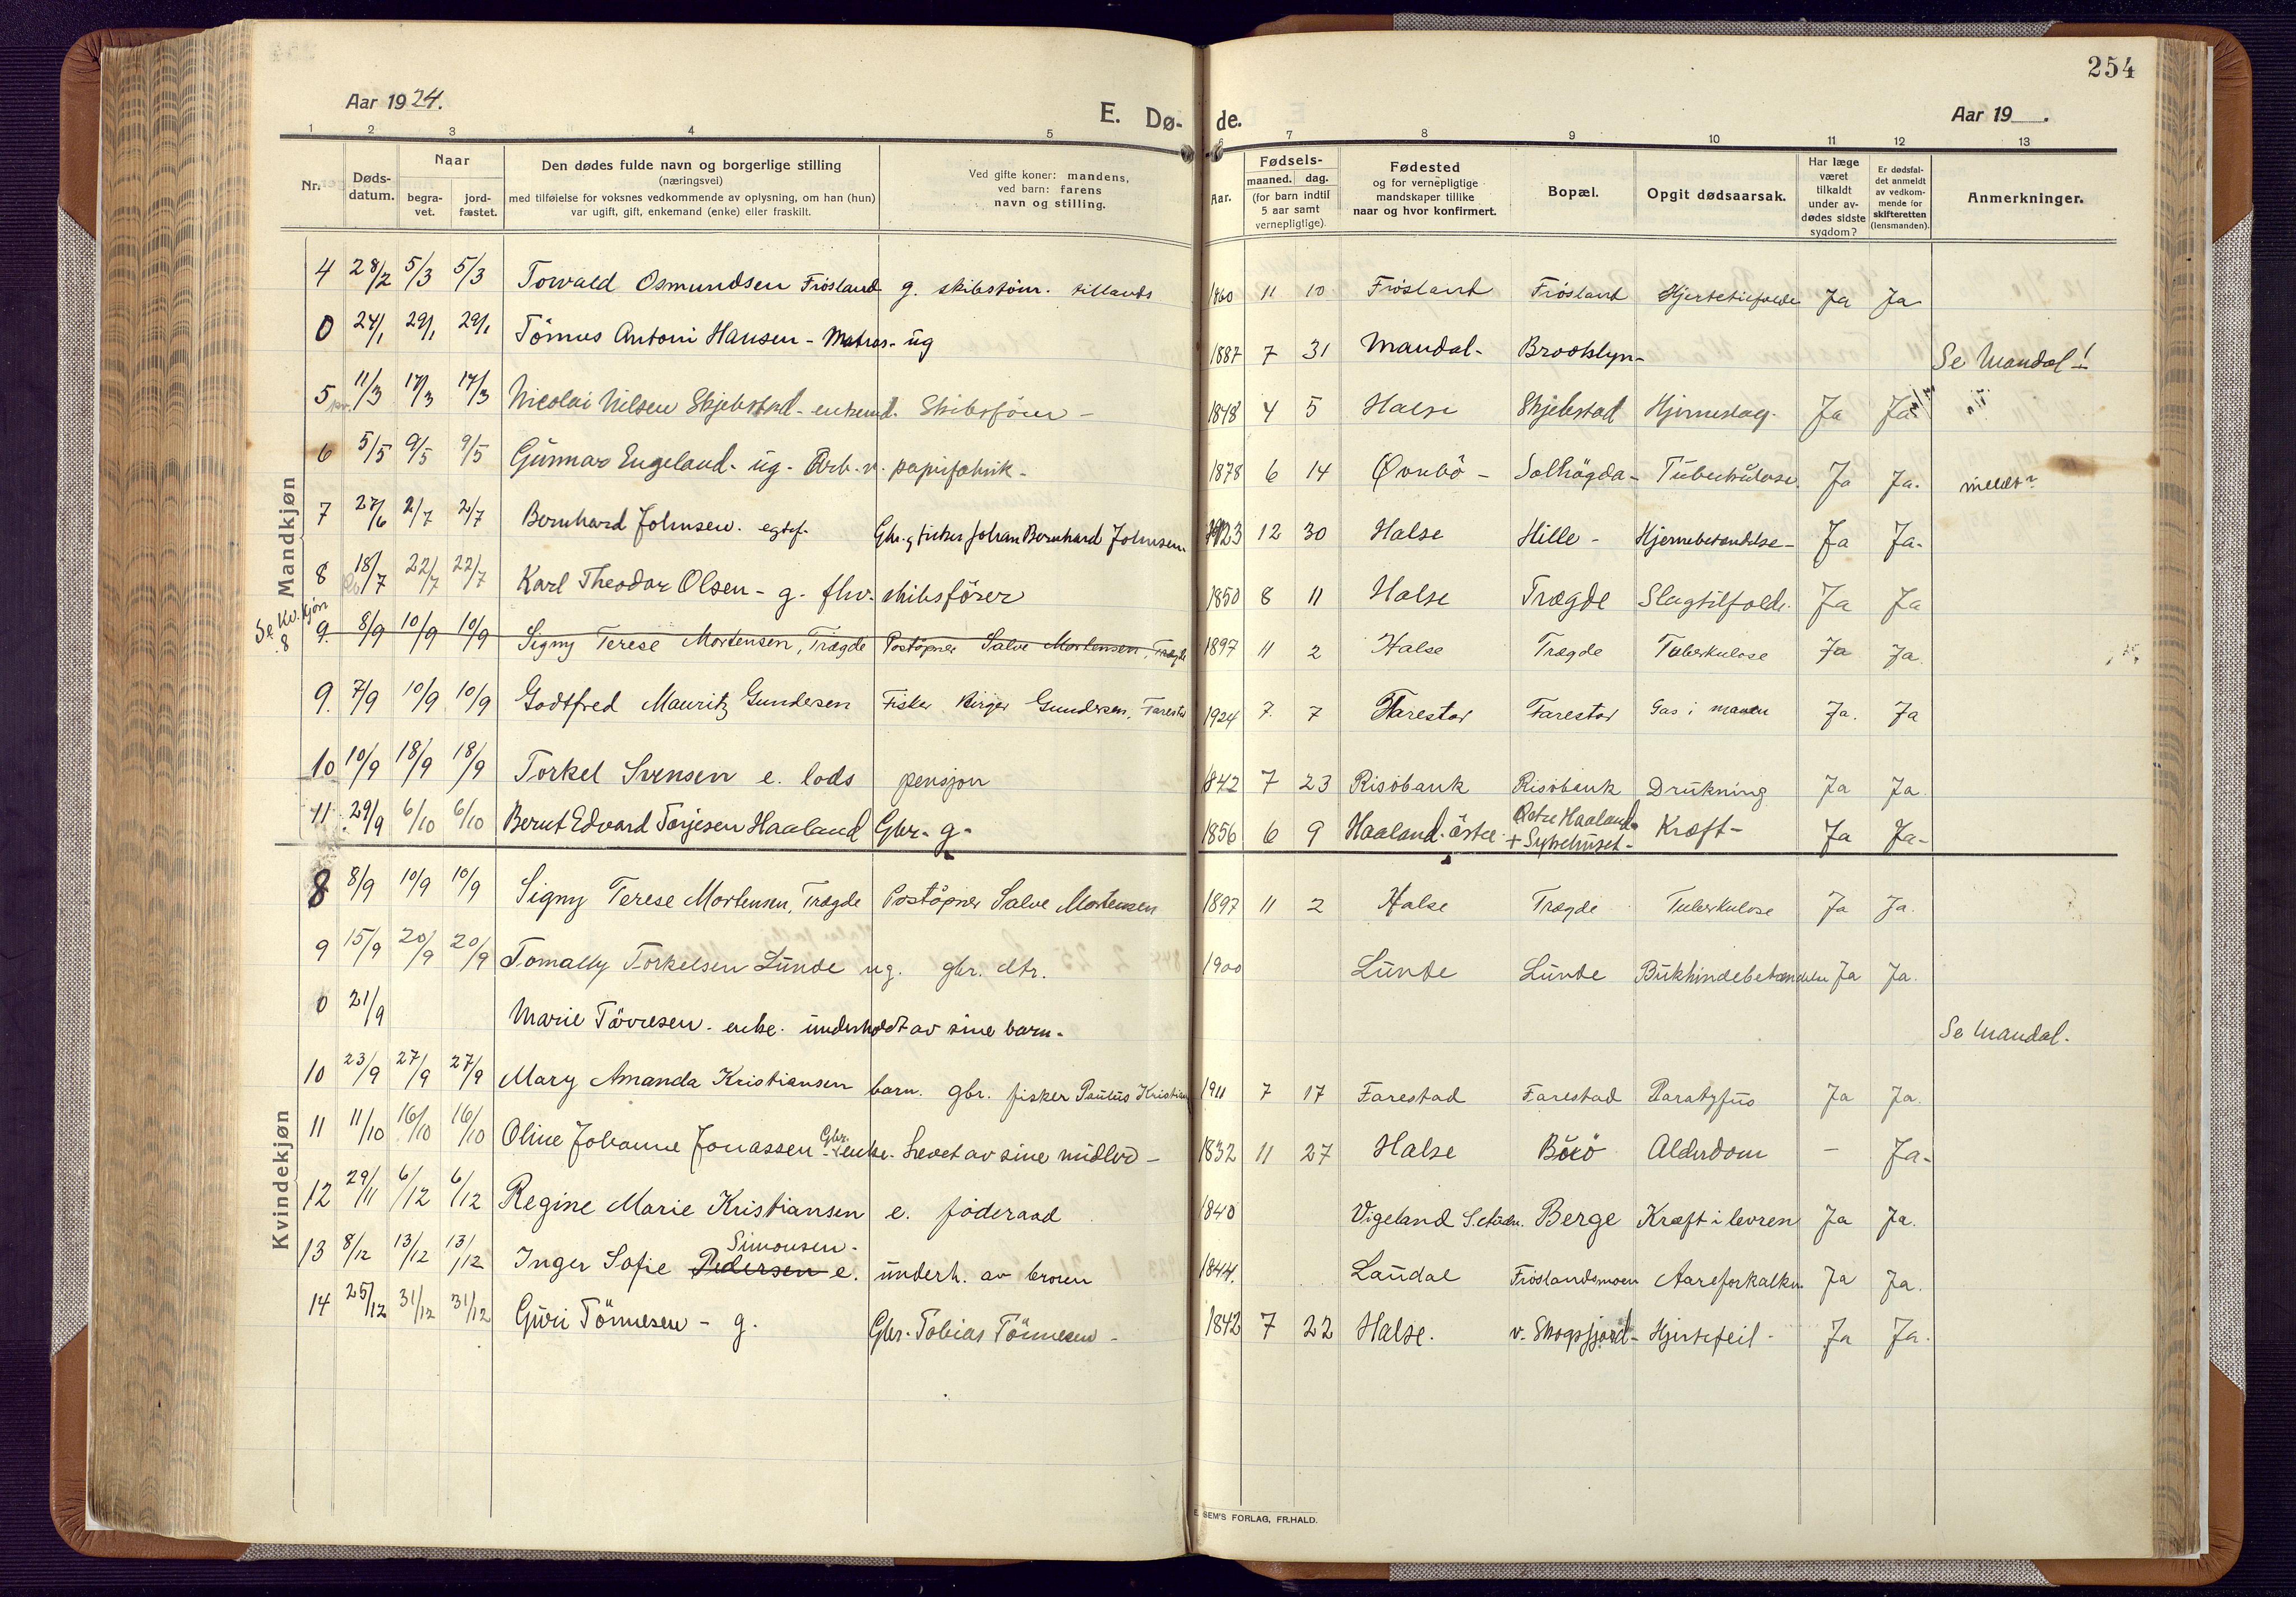 254
Aar 1924.
E. Dø- de.
Aar 19 .
1 2 3 4 5 7 8 9 10 11 12 13
Nr.
Døds-
datum.
Naar
begra-
vet.
jord-
fæstet.
Den dødes fulde navn og borgerlige stilling
(næringsvei)
med tilføielse for voksnes vedkommende av oplysning, om han (hun)
var ugift, gift, enkemand (enke) eller fraskilt.
Ved gifte koner: mandens,
ved barn: farens
navn og stilling.
Aar.
Fødsels-
maaned. dag.
(for barn indtil
5 aar samt
vernepligtige).
Fødested
og for vernepligtige
mandskaper tillike
naar og hvor konfirmert.
Bopæl.
Opgit dødsaarsak.
Har læge
været
tilkaldt
under av-
dødes sidste
sygdom?
Er dødsfal-
det anmeldt
av vedkom-
mende for
skifteretten
(lensmanden).
Anmerkninger.
Mandkjøn
4 28/2 5/3 5/3 Torvald Osmundsen Frösland g. skibstöm. tillands 1860 11 10 Frösland Frösland Hjertetilfælde Ja Ja
0 24/1 29/1 29/1 Tönnes Antoni Hansen - Matros - ug 1887 7 31 Mandal - Brooklyn - Se Mandal!
5 11/3 17/3 17/3 Nicolai Nilsen Skjebstad - enkemd. Skibstöm - 1848 4 5 Halse Skjebstad Hjerneslag. Ja Ja
6 5/5 9/5 9/5 Gunnar Engeland - ug - Arb. v. papirfabrik - 1878 6 14 Øvrebö - Solhögda - Tuberkulose. Ja Ja. meldt
7 27/6 2/7 2/7 Bernhard Johnsen. egtef. Gbr. g fisker Johan Bernhard Johnsen 1923 12 30 Halse Hille - Hjernebetændelse - Ja Ja -
8 18/7 22/7 22/7 Karl Theodor Olsen - g. fhv. skibsförer 1850 8 11 Halse Trægde Slagtilfælde. Ja Ja
Se Kv. kjøn
8
9. 8/9 10/9 10/9 Signy Terese Mortensen, Trægde Poståpner Salve Mortensen, Trægde 1897 11 2 Halse Trægde Tuberkulose Ja Ja.
9. 7/9 10/9 10/9 Godtfred Mauritz Gundersen Fisker Birger Gundersen, Farestad 1924 7. 7 Farestad Farestad Gas i maven Ja. Ja
10 10/9 18/9 18/9 Torkel Svensen e. lods pensjon 1842 7 23 Risöbank Risöbank Drukning Ja Ja.
11. 29/9 6/10 6/10 Bernt Edvard Torjesen Haaland Gbr. g. 1856 6 9 Haaland. östre Östre Haaland. Kræft - Ja Ja -
+ Sykehuset -
Kvindekjøn
8 8/9 10/9 10/9 Signy Terese Mortensen, Trægde Poståpner Salve Mortensen 1897 11 2 Halse Trægde Tuberkulose Ja Ja.
9 15/9 20/9 20/9 Tomally Torkelsen Lunde ug. gbr. dtr. 1900 Lunde Lunde Bukhindebetændelse Ja Ja.
0 21/9 Marie enke. underholdt av sine barn. Se Mandal.
10 23/9 27/9 27/9 Mary Amanda Kristiansen barn. gbr. fisker Paulus Kristian 1911 7 17 Farestad Farestad Paratyfus Ja Ja.
11 11/10 16/10 16/10 Oline Johanne Jonassen Gbr. enke. Levet av sine midler - 1832 11 27 Halse Buö Alderdom - Ja -
12 29/11 6/12 6/12 Regine Marie Kristiansen e. föderaad 1840 Vigeland Berge Kræft i levren Ja Ja.
Simonsen -
13 8/12 13/12 13/12 Inger Sofie Pedersen e. underh. av broren 1844. Laudal Fröslandsmoen Aareforkalkn. Ja Ja.
14 25/12 31/12 31/12 Guri Tönnesen - g. Gbr. Tobias Tönnesen - 1842 7 22 Halse. v. Skogsfjord - Hjertefeil - Ja Ja.
SEM'S FORLAG, FR.HALD.